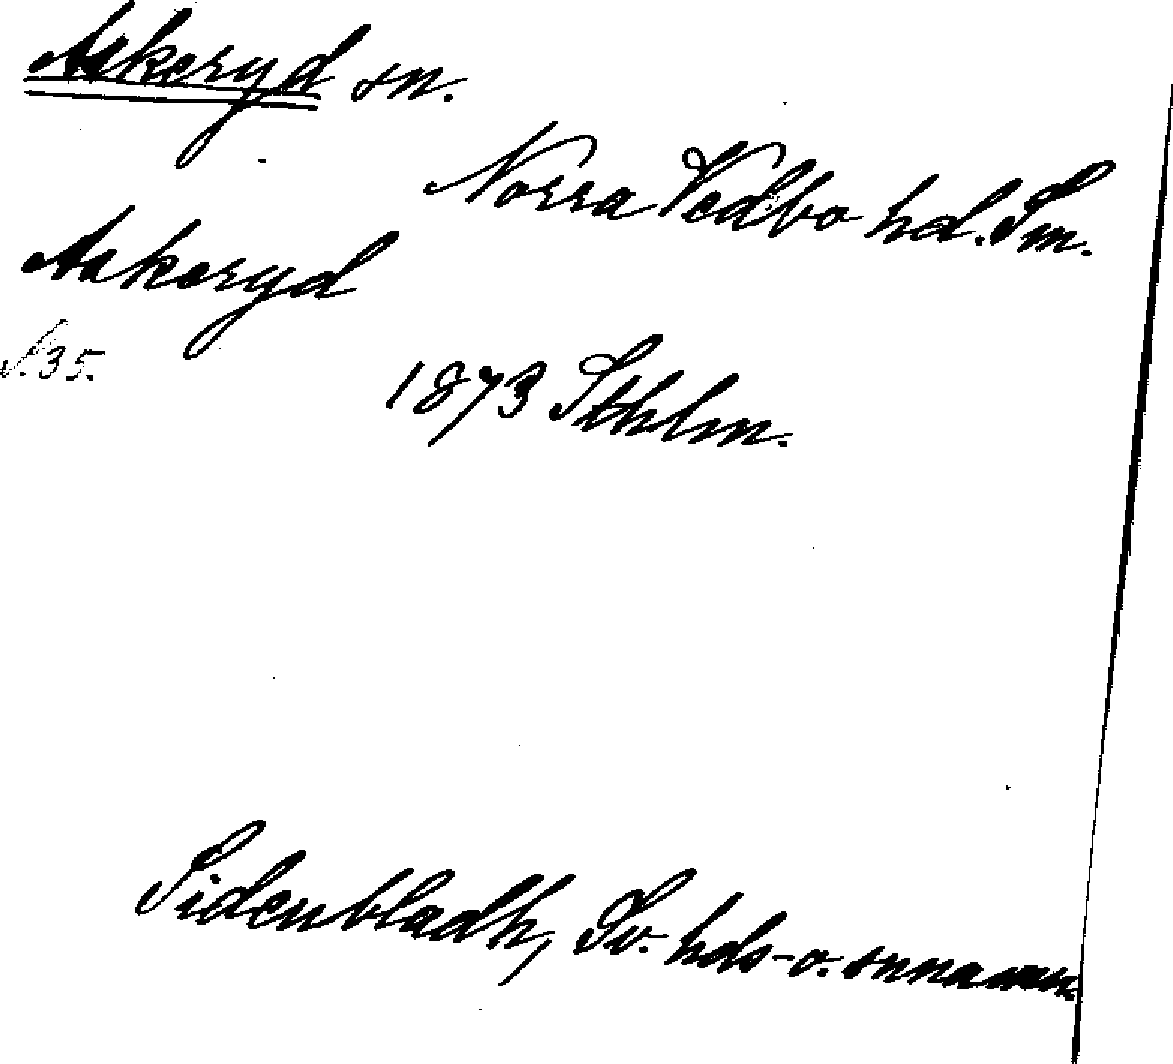 Askeryd sn.
Norra Vedbo hd. Sm.
Askeryd
s. 35.
1873 Sthlm.
Sidenbladh, Sv. hds- o. snnamn.